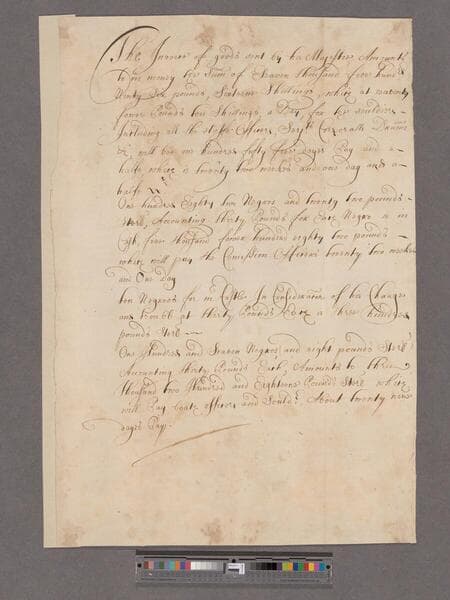 The Invoice of goods sent by his Majestie, Amounts
to in money the Sum of Seaven thousand five hund
Ninty Six pounds, Sixteen Shillings, which at seventy
foure Pounds ten Shillings a Day, for the souldiers
Including all the Staffe Officers, Serjts Corporalls Drums
&c, will be one hundred fifty foure dayes Pay and a
halfe which is twenty two weekes and one day and a
halfe
One hundred Eighty two Negros and twenty two pounds
Sterl, Accounting thirty Pounds for Each Negro is in
five thousand foure hundred eighty two pounds
which will pay the Comission Officers twenty two weekes
and One day
ten Negroes for in Consideration of his Charges
and trouble at thirty Pounds Each is three hundred
pounds Sterl
One Hundred and Seaven Negros, and eight pounds Sterl
Accounting thirty pounds Each, Amounts to three
thousand two Hundred and Eighteene Pounds Sterl which
will Pay both officers and Sould: About twenty nine
dayes Pay